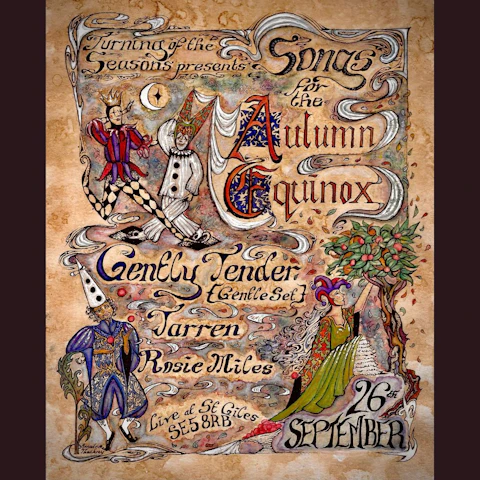 Turning of the
Seasons presents
Songs
for
the
Autumn
Equinox
Gently Tender
{Gentle Set}
Tarren
Rosie Miles
Live at St Giles
SE5 8RB
26th
SEPTEMBER